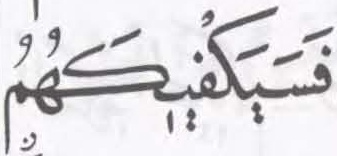 فَسَيَكْفِيكَهُمُ